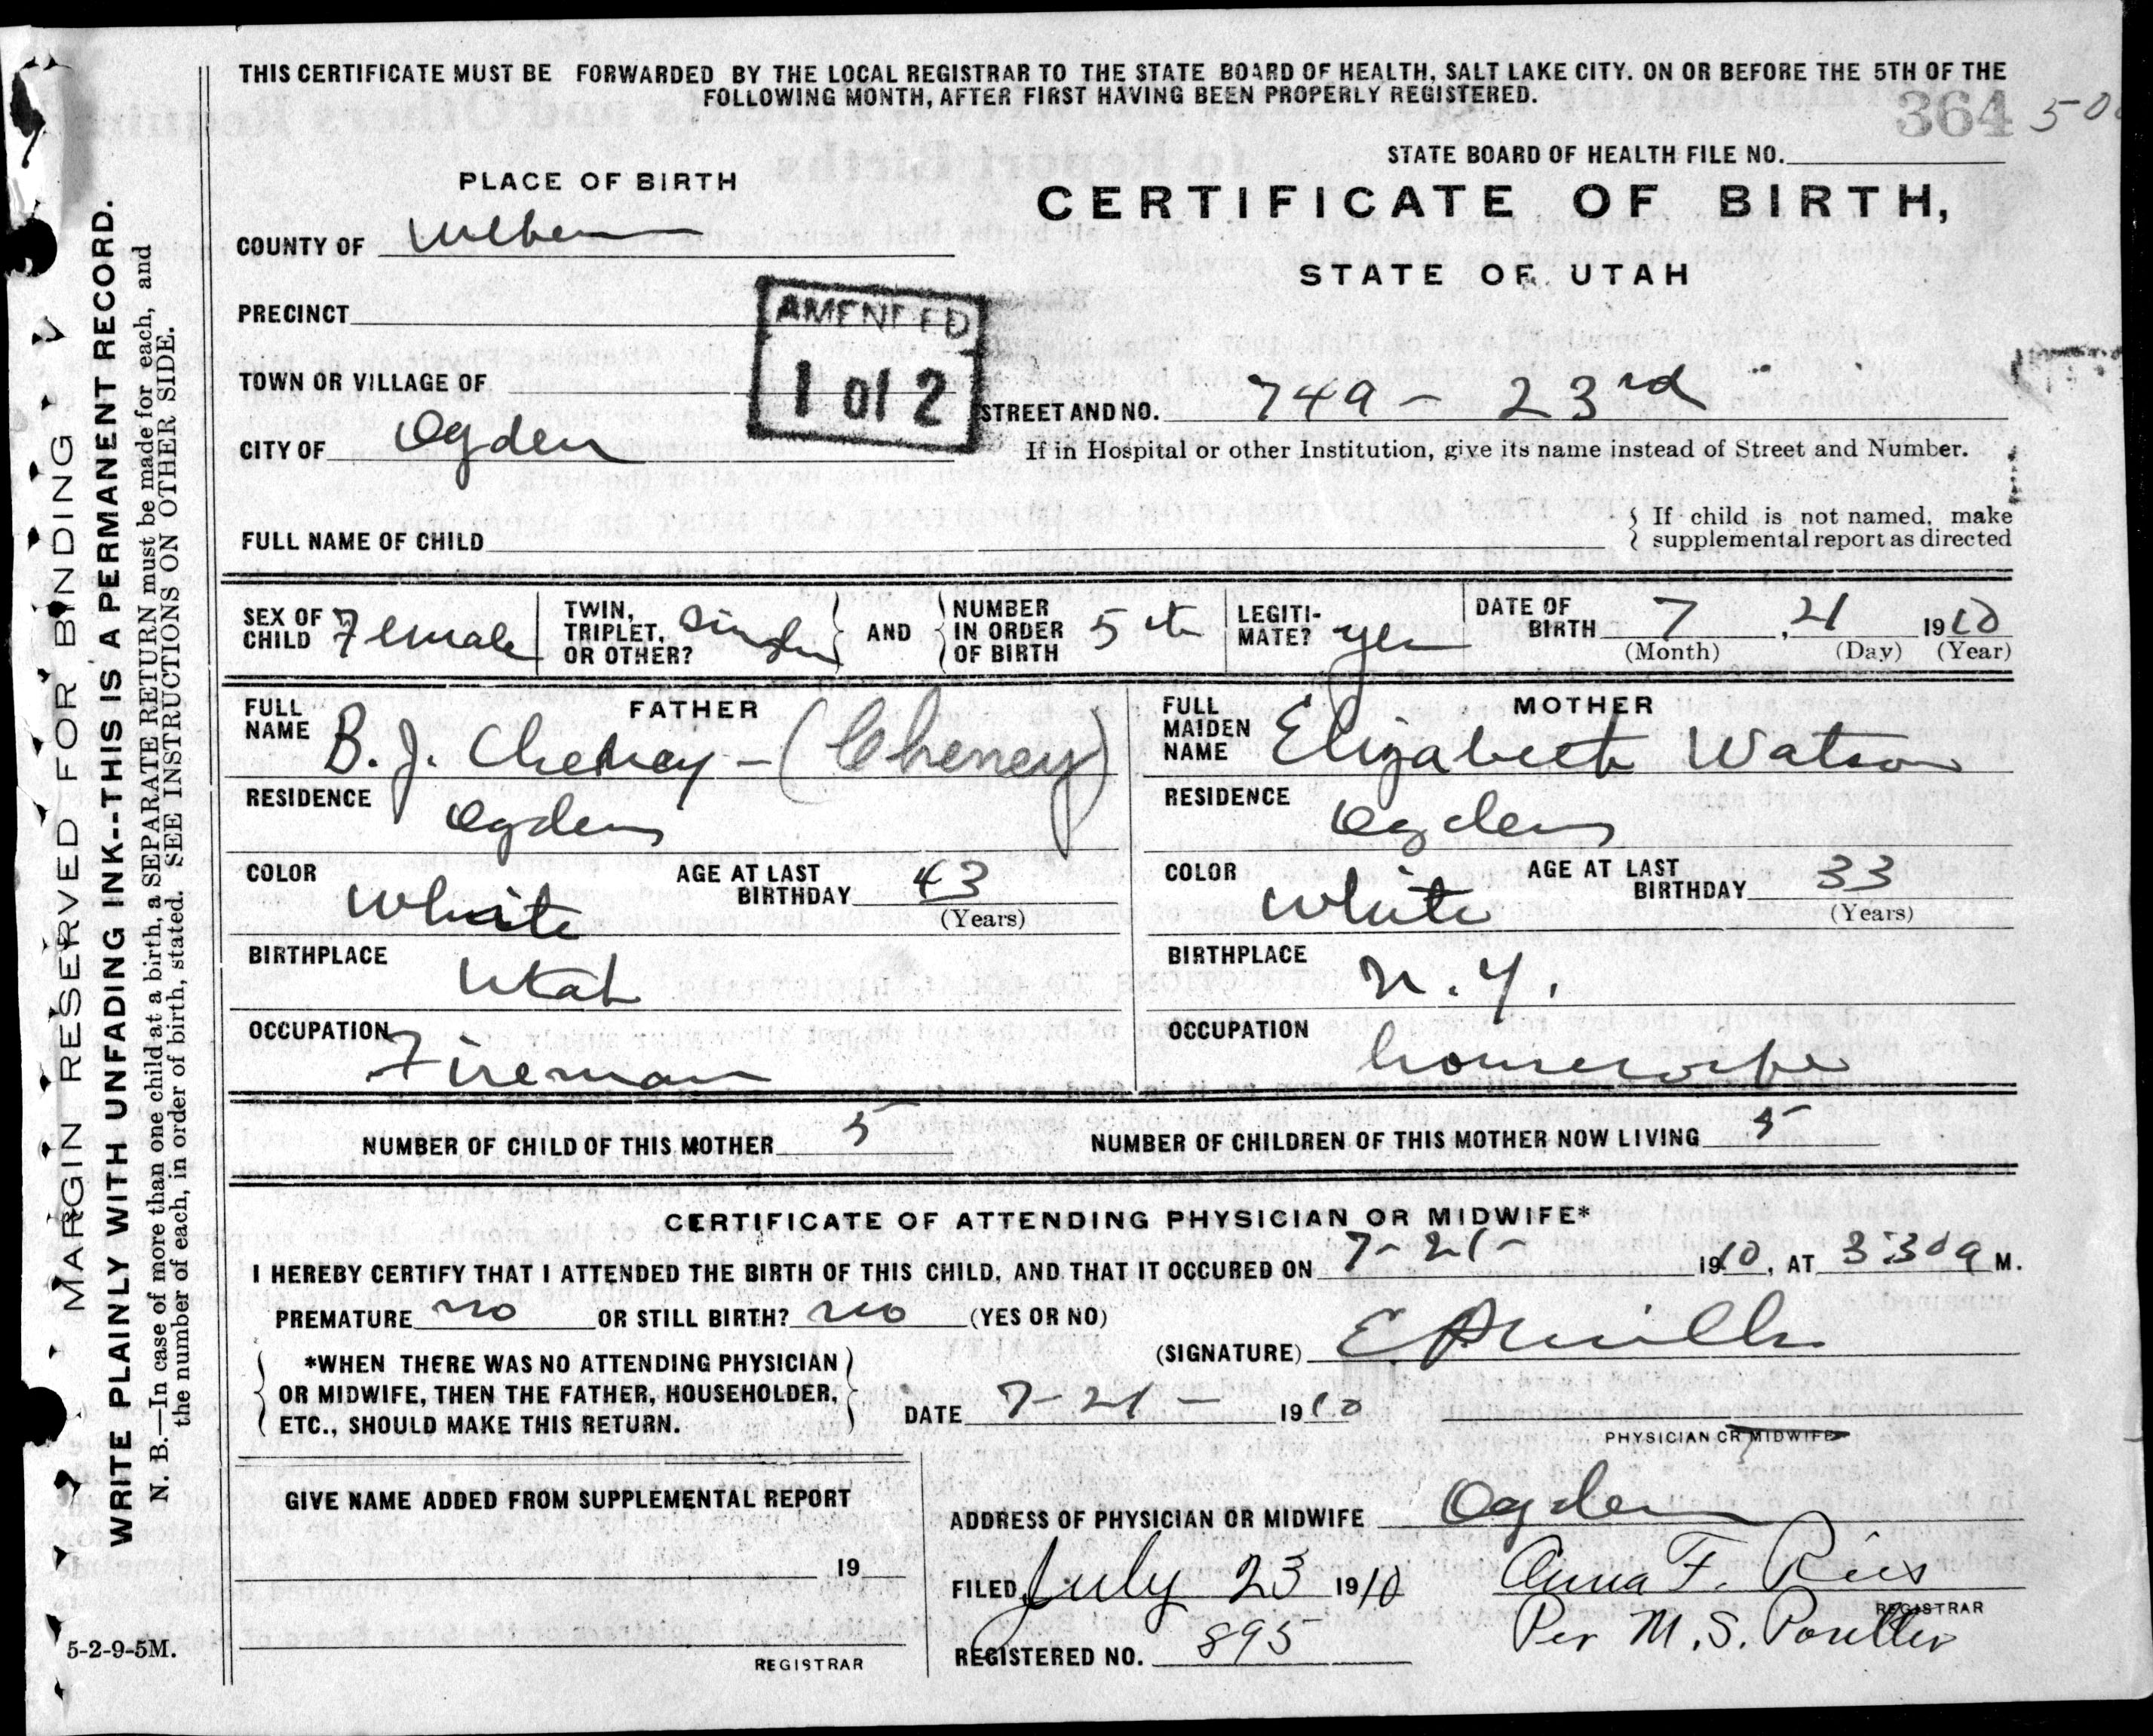 THIS CERTIFICATE MUST BE FORWARDED BY THE LOCAL REGISTRAR TO THE STATE BOARD OF HEALTH, SALT LAKE CITY. ON OR BEFORE THE 5TH OF THE
FOLLOWING MONTH, AFTER FIRST HAVING BEEN PROPERLY REGISTERED.
364
STATE BOARD OF HEALTH FILE NO.
PLACE OF BIRTH
CERTIFICATE OF BIRTH,
STATE OF UTAH
COUNTY OF Weber
PRECINCT
AMENDED
1 of 2
TOWN OR VILLAGE OF
STREET AND NO. 749 - 23rd
CITY OF Ogden
If in Hospital or other Institution, give its name instead of Street and Number.
FULL NAME OF CHILD
If child is not named, make
supplemental report as directed
SEX OF CHILD Female
TWIN, TRIPLET, OR OTHER? Single
AND
NUMBER IN ORDER OF BIRTH 5th
LEGITI-MATE? yes
DATE OF BIRTH 7, 21 1910
(Month) (Day) (Year)
FATHER
FULL NAME B. J. (Cheney)
MOTHER
FULL MAIDEN NAME Elizabeth Watson
RESIDENCE Ogden
RESIDENCE Ogden
COLOR White
AGE AT LAST BIRTHDAY 43
(Years)
COLOR White
AGE AT LAST BIRTHDAY 33
(Years)
BIRTHPLACE Utah
BIRTHPLACE N.Y.
OCCUPATION Fireman
OCCUPATION housewife
NUMBER OF CHILD OF THIS MOTHER 5
NUMBER OF CHILDREN OF THIS MOTHER NOW LIVING 5
CERTIFICATE OF ATTENDING PHYSICIAN OR MIDWIFE*
I HEREBY CERTIFY THAT I ATTENDED THE BIRTH OF THIS CHILD, AND THAT IT OCCURED ON 7-21- 1910, AT 3:30 a M.
PREMATURE no OR STILL BIRTH? no (YES OR NO)
(SIGNATURE)
*WHEN THERE WAS NO ATTENDING PHYSICIAN
OR MIDWIFE, THEN THE FATHER, HOUSEHOLDER,
ETC., SHOULD MAKE THIS RETURN.
DATE 7-21- 1910
PHYSICIAN OR MIDWIFE
GIVE NAME ADDED FROM SUPPLEMENTAL REPORT
19
REGISTRAR
ADDRESS OF PHYSICIAN OR MIDWIFE Ogden
FILED July 23 1910
Anna F. Ries
REGISTRAR
Per M. S.
REGISTERED NO. 895
5-2-9-5M.
MARGIN RESERVED FOR BINDING
WRITE PLAINLY WITH UNFADING INK--THIS IS A PERMANENT RECORD.
N. B.—In case of more than one child at a birth, a SEPARATE RETURN must be made for each, and
the number of each, in order of birth, stated. SEE INSTRUCTIONS ON OTHER SIDE.